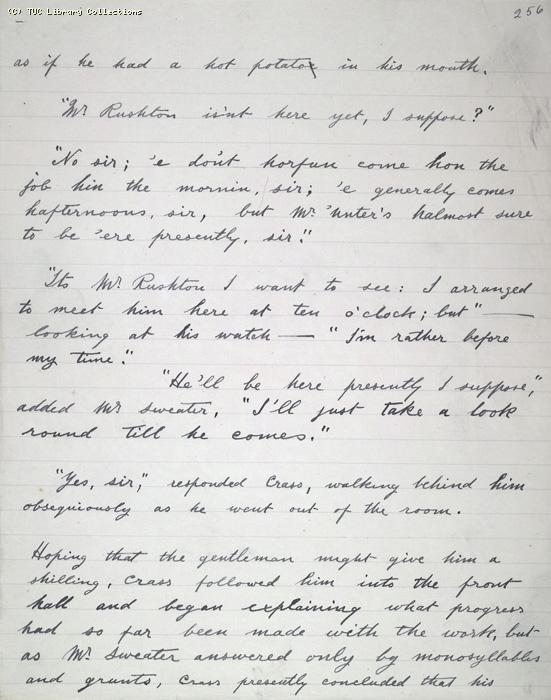 (C) TUC Library Collections
256
as if he had a hot potato in his mouth.
"Mr Rushton isn't here yet, I suppose?"
"No sir; 'e don't horfun come hon the
job hin the mornin, sir; 'e generally comes
hafternoons, sir, but Mr 'Unter's halmost sure
to be 'ere presently, sir."
"Its Mr Rushton I want to see: I arranged
to meet him here at ten o'clock; but" —
looking at his watch — "I'm rather before
my time."
"He'll be here presently I suppose,"
added Mr Sweater, "I'll just take a look
round till he comes."
"Yes, sir," responded Crass, walking behind him
obsequiously as he went out of the room.
Hoping that the gentleman might give him a
shilling, Crass followed him into the front
hall and began explaining what progress
had so far been made with the work, but
as Mr Sweater answered only by monosyllables
and grunts, Crass presently concluded that his